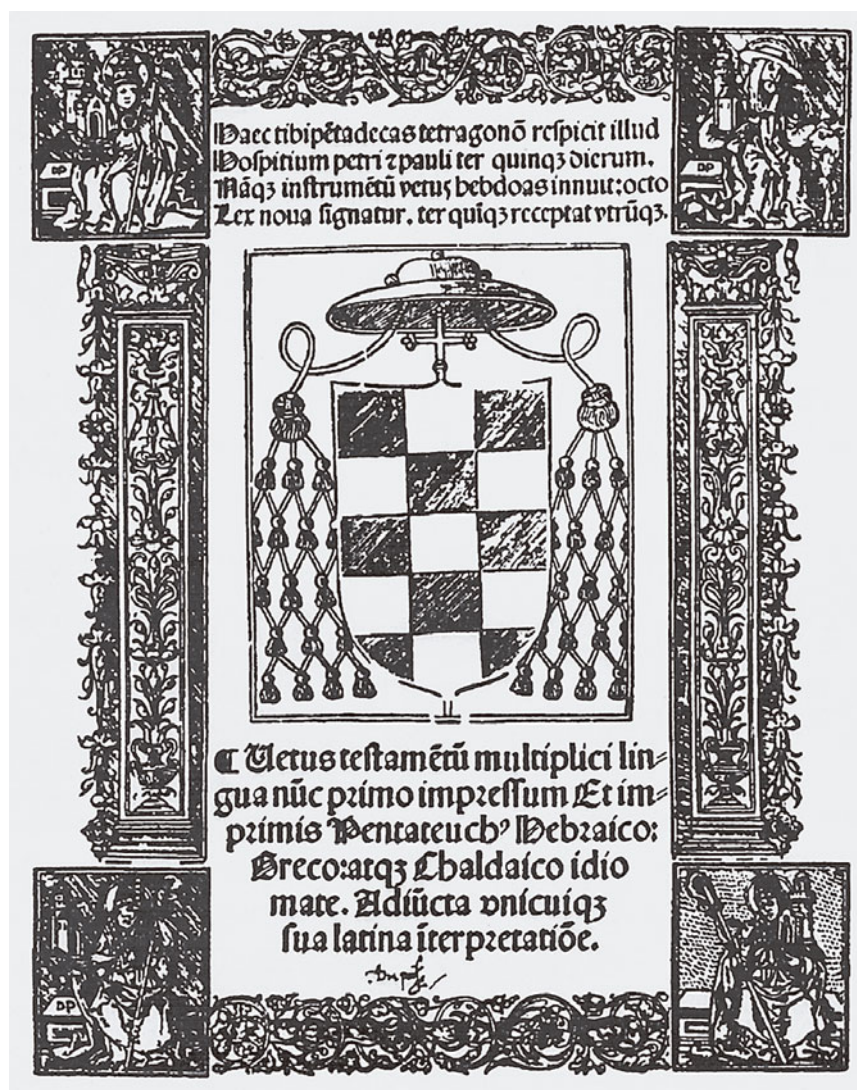 Haec tibi pētadecas tetragonō respicit illud
Hospitium petri ⁊ pauli ter quinqꝫ dierum.
Nāqꝫ instrumētū vetus hebdoas innuit: octo
Lex nova signatur. ter quīqꝫ receptat vtrūqꝫ.
DP
DP
¶ Vetus testamētū multiplici lin⸗
gua nūc primo impressum Et im⸗
primis Pentateuchꝰ Hebraico:
Greco: atqꝫ Chaldaico idio
mate. Adiūcta vnicuiqꝫ
sua latina īterpretatiōe.
DP